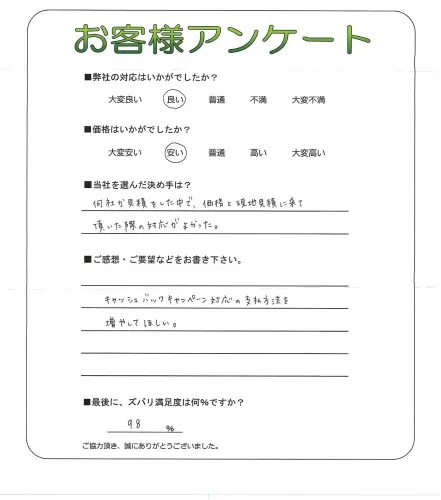 お客様アンケート
■弊社の対応はいかがでしたか?
大変良い 良い 普通 不満 大変不満
■価格はいかがでしたか?
大変安い 安い 普通 高い 大変高い
■当社を選んだ決め手は?
何社か見積をした中で、価格と現地見積に来て
頂いた際の対応がよかった。
■ご感想・ご要望などをお書き下さい。
キャッシュバックキャンペーン対応の支払方法を
増やしてほしい。
■最後に、ズバリ満足度は何%ですか?
98 %
ご協力頂き、誠にありがとうございました。